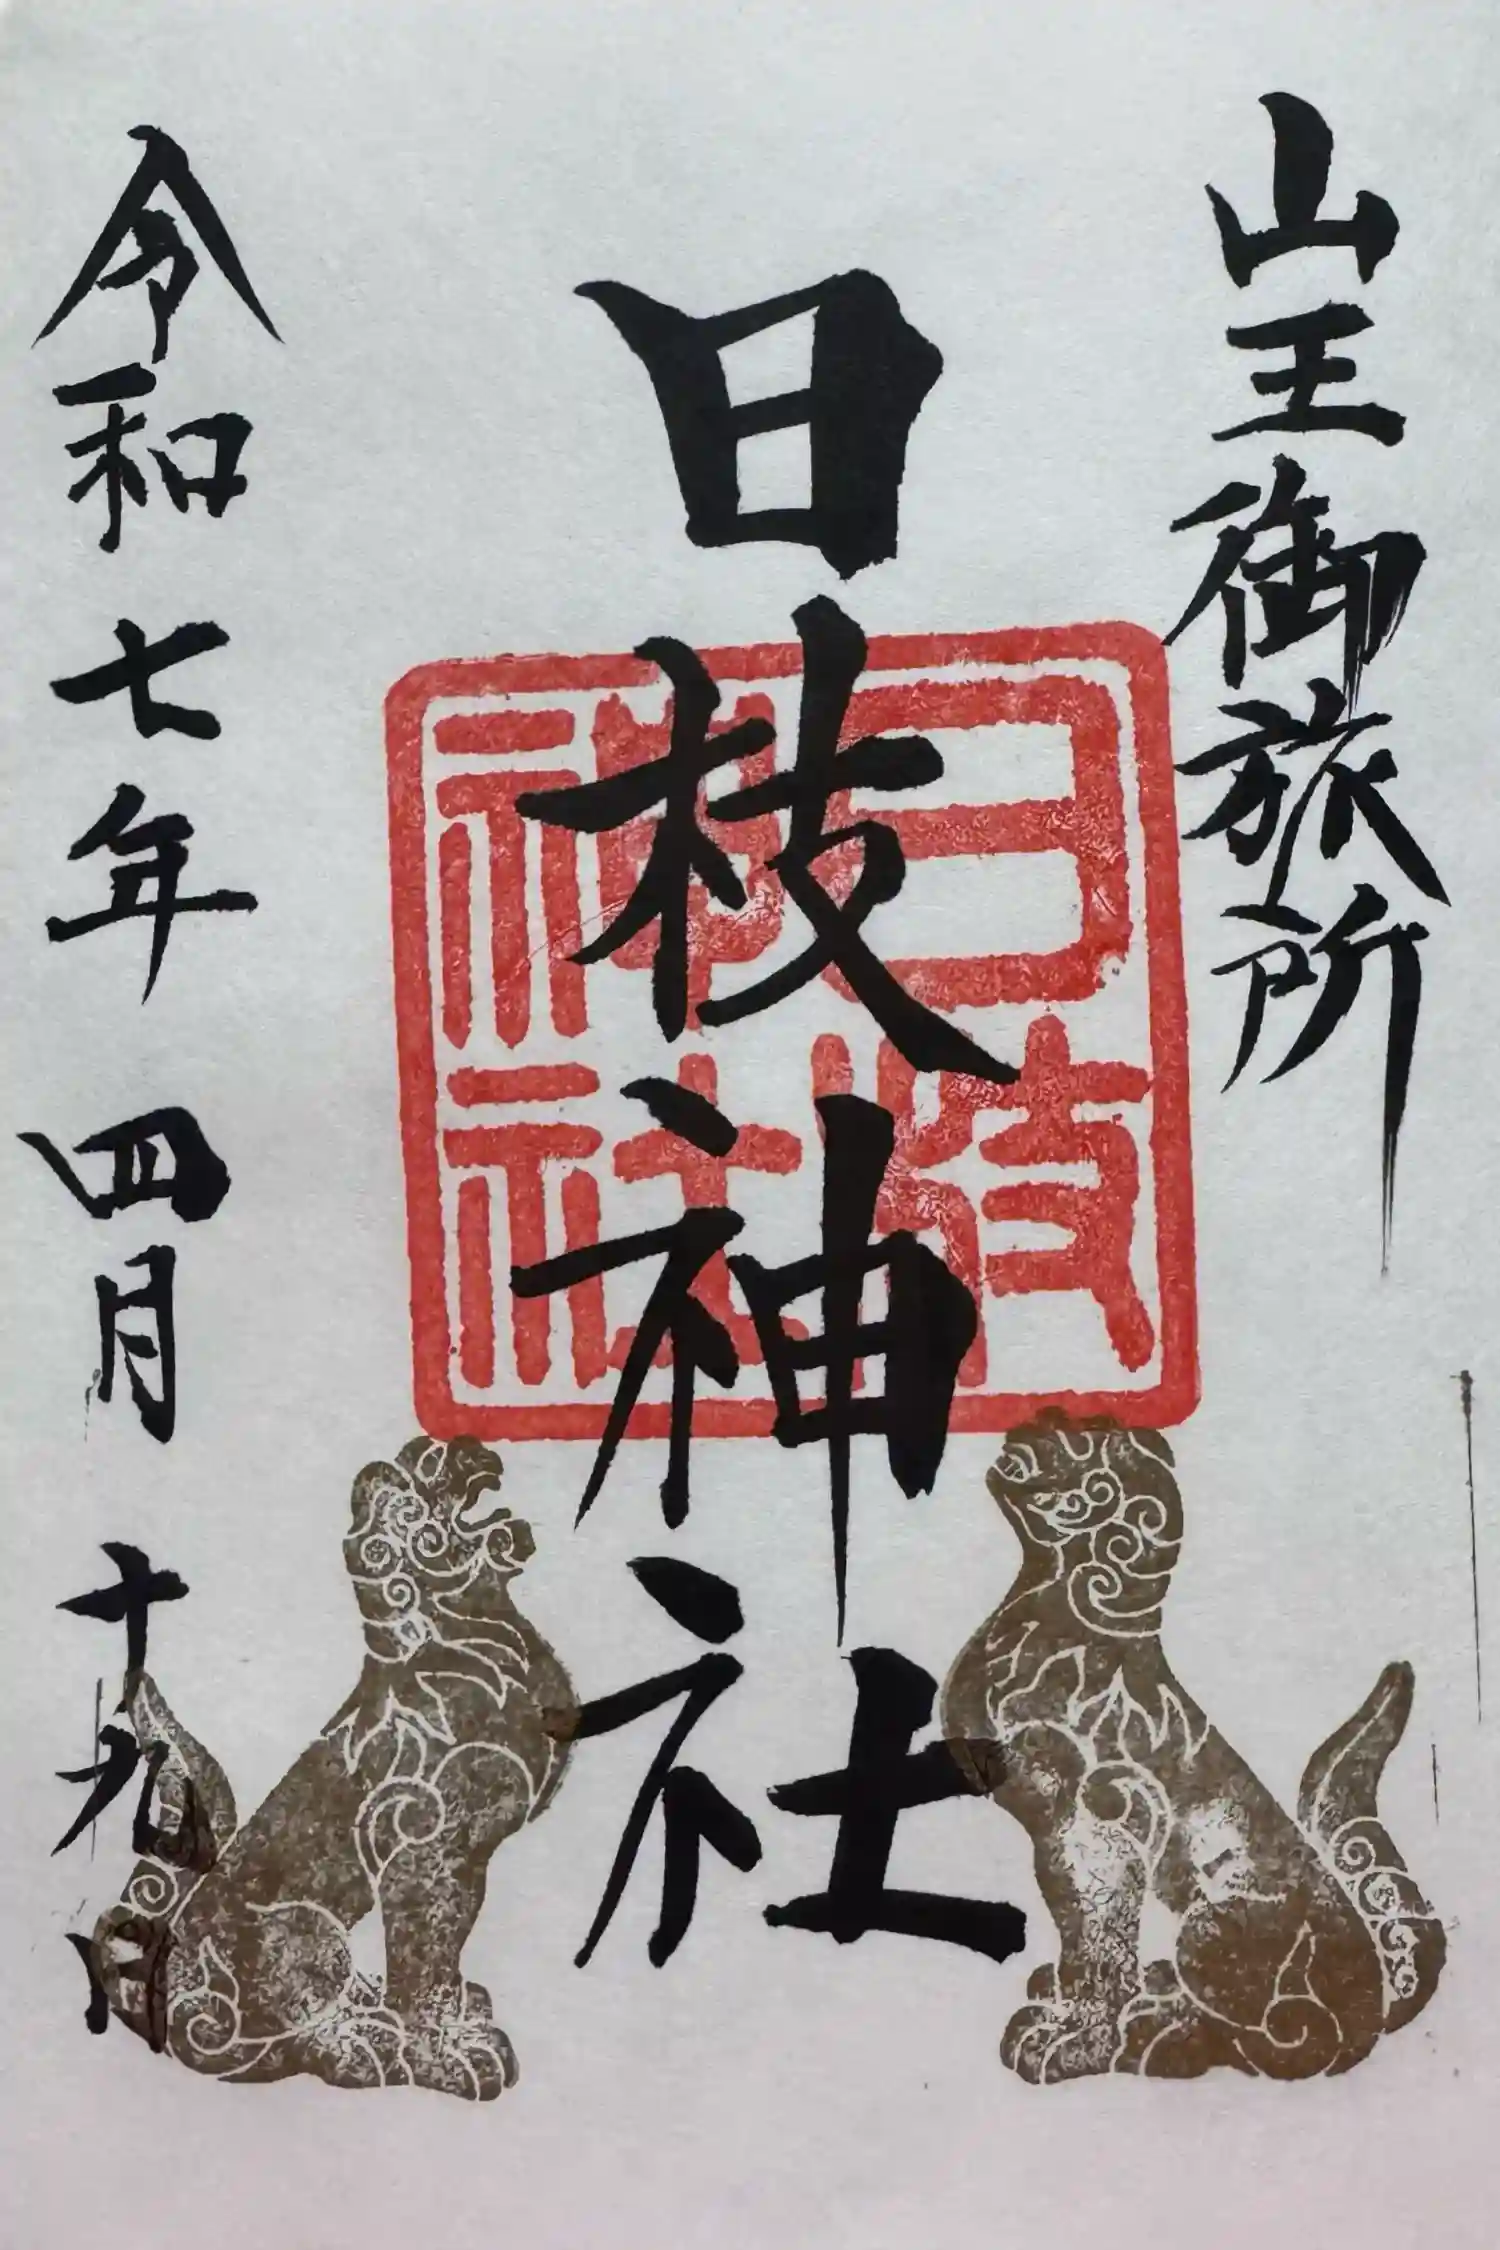 山王御旅所
日枝神社
日枝
神社
令和七年四月十九日